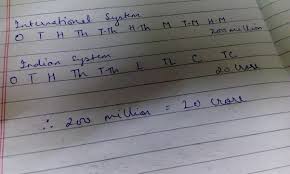 International System
O T H Th T-Th H-Th M T-M H-M
200 million
Indian System
O T H Th T-Th L TL C TC
20 crore
∴ 200 million = 20 crore